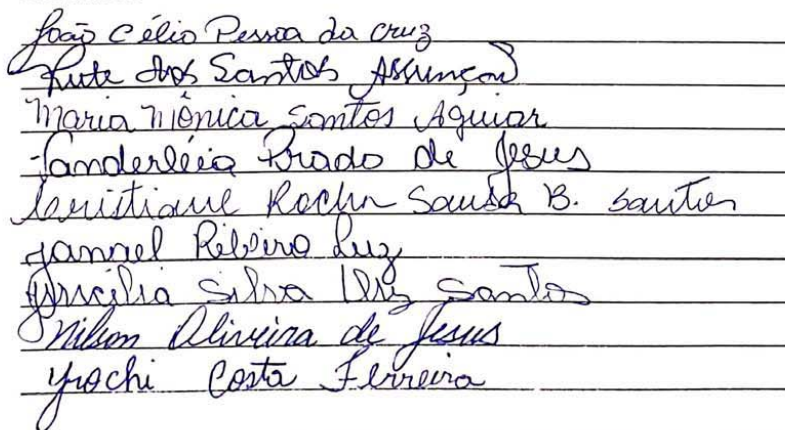 João Célio Pessoa da Cruz
Rute dos Santos Assunção
Maria Mônica Santos Aguiar
Vanderléia Prado de Jesus
Cristiane Rocha Sousa B. Santos
Ribeiro Luz
Silva Santos
Nilson Oliveira de Jesus
Costa Ferreira